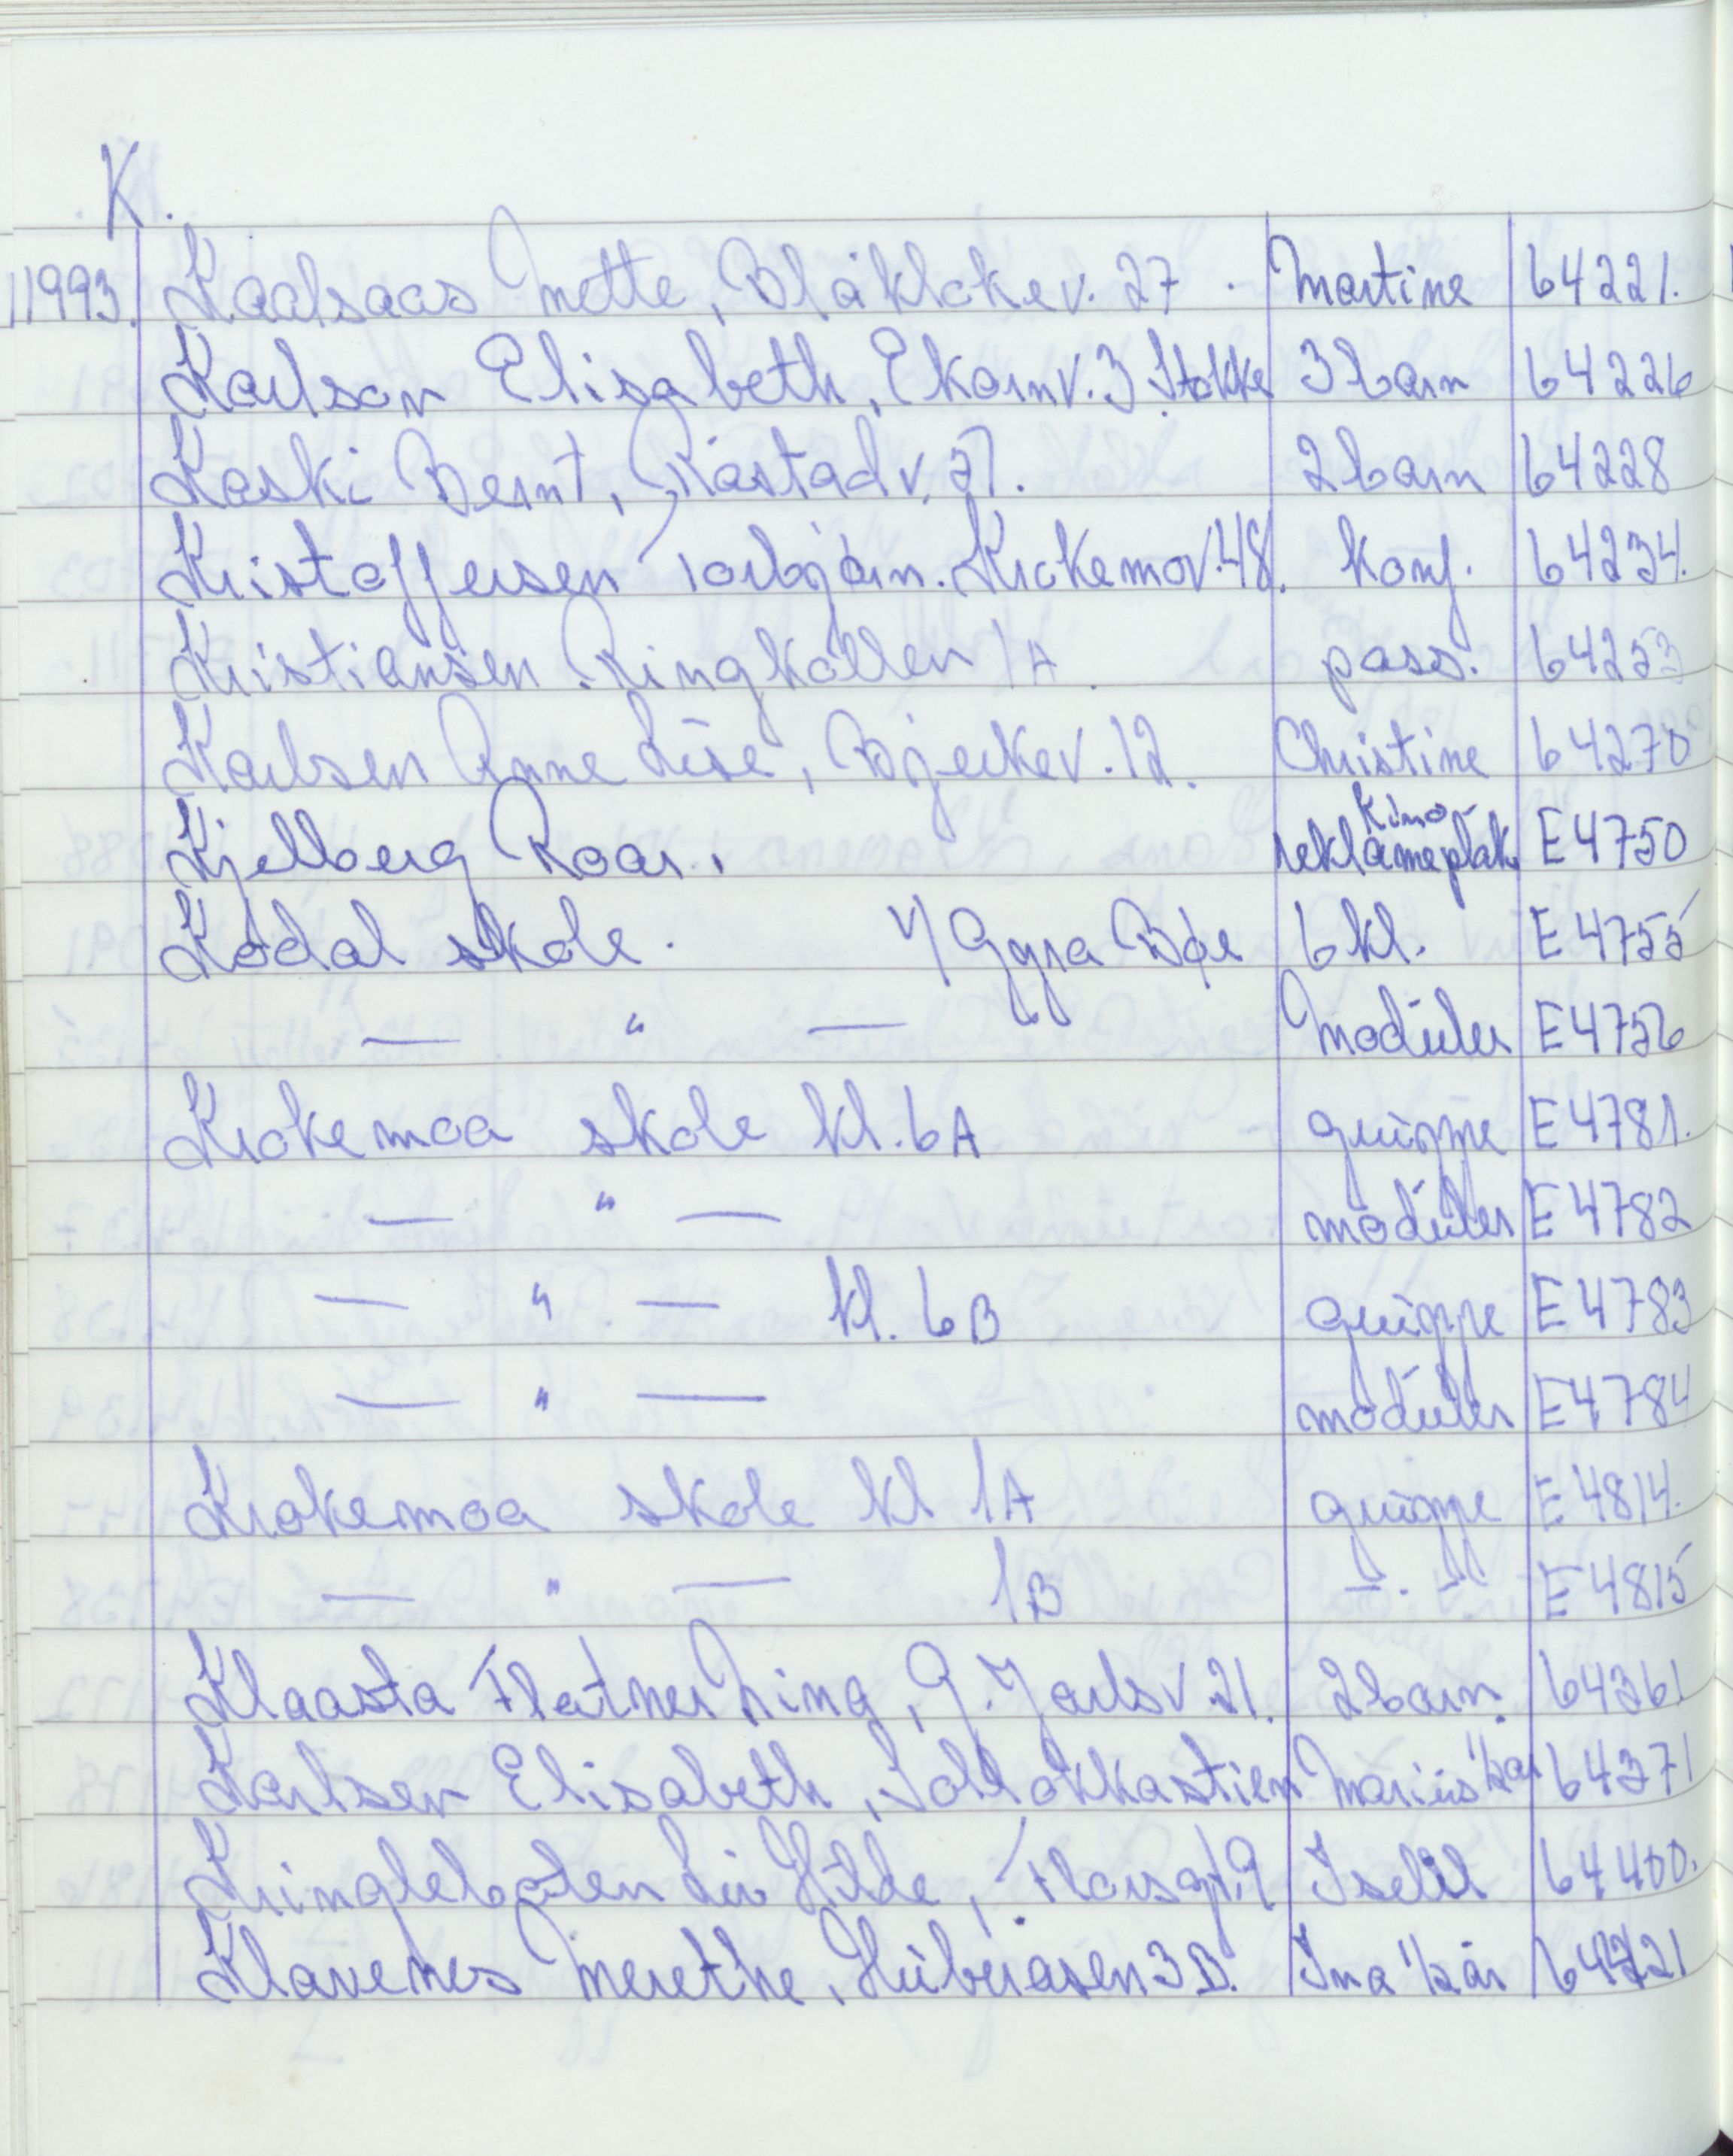 K.
1993. Kaalsaas Mette, Blåklokkev. 27. Martine 64221.
Karlson Elisabeth, Ekornv. 3 Stokke 3 barn 64226
Kaski Bernt, Råstadv. 27. 2 barn 64228
Kristoffersen Torbjørn. Krokemov. 48. konf. 64234.
Kristiansen. Ringkollen 1A. pass. 64253
Karlsen Anne Lise, Bjerkev. 12. Christine 64270
Kjellberg Roar. Kino-
reklameplak E4750
Kodal skole. v/ Gyra Bøe 6 kl. E4755
— " — Moduler E4756
Krokemoa skole kl. 6A gruppe E4781.
— " — moduler E4782
— " — kl. 6B gruppe E4783
— " — moduler E4784
Krokemoa skole kl 1A gruppe E4814.
— " — 1B — " — E4815
Klaasta Flatner Ning, G. Jarlsv. 21. 2 barn. 64361
Karlsen Elisabeth, Solløkkastien Marius ½ år 64371
Kringlebotten Liv Hilde, Thorsgt. 9 Iselil 64400.
Klavenes Merethe, Hüberåsen 3B. Ina ½ år